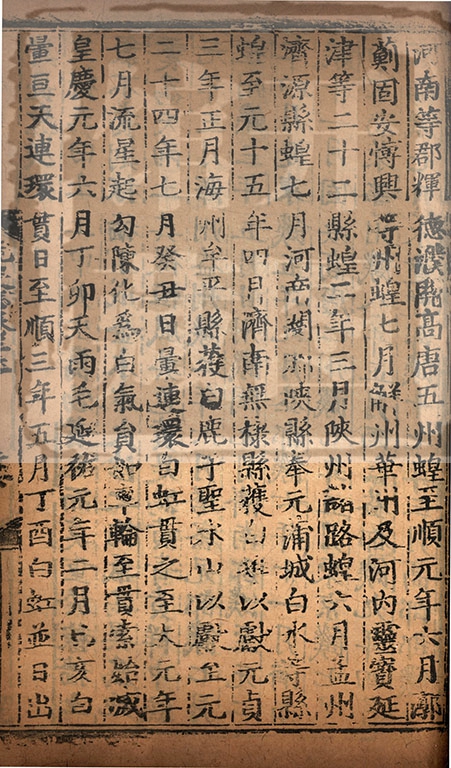 河南等郡輝德濮開高唐五州蝗至順元年六月漷
薊固安愽興等州蝗七月解州華州及河內靈寶延
津等二十二縣蝗二年三月陝州諸路蝗六月孟州
濟源縣蝗七月河南閿鄉陝縣奉元蒲城白水等縣
蝗至元十五年四月濟南無棣縣獲白雉以獻元貞
三年正月海州牟平縣獲白鹿于聖水山以獻至元
二十四年七月癸丑日暈連環白虹貫之至大元年
七月流星起勾陳化爲白氣員如車輪至貫索始滅
皇慶元年六月丁卯天雨毛延祐元年二月己亥白
暈亘天連環貫日至順三年五月丁酉白虹並日出